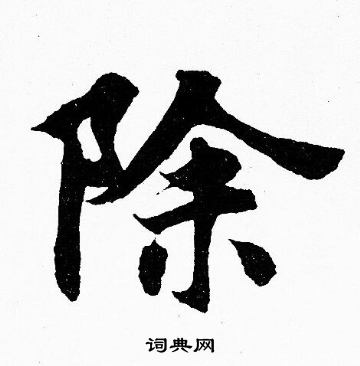 除
词典网